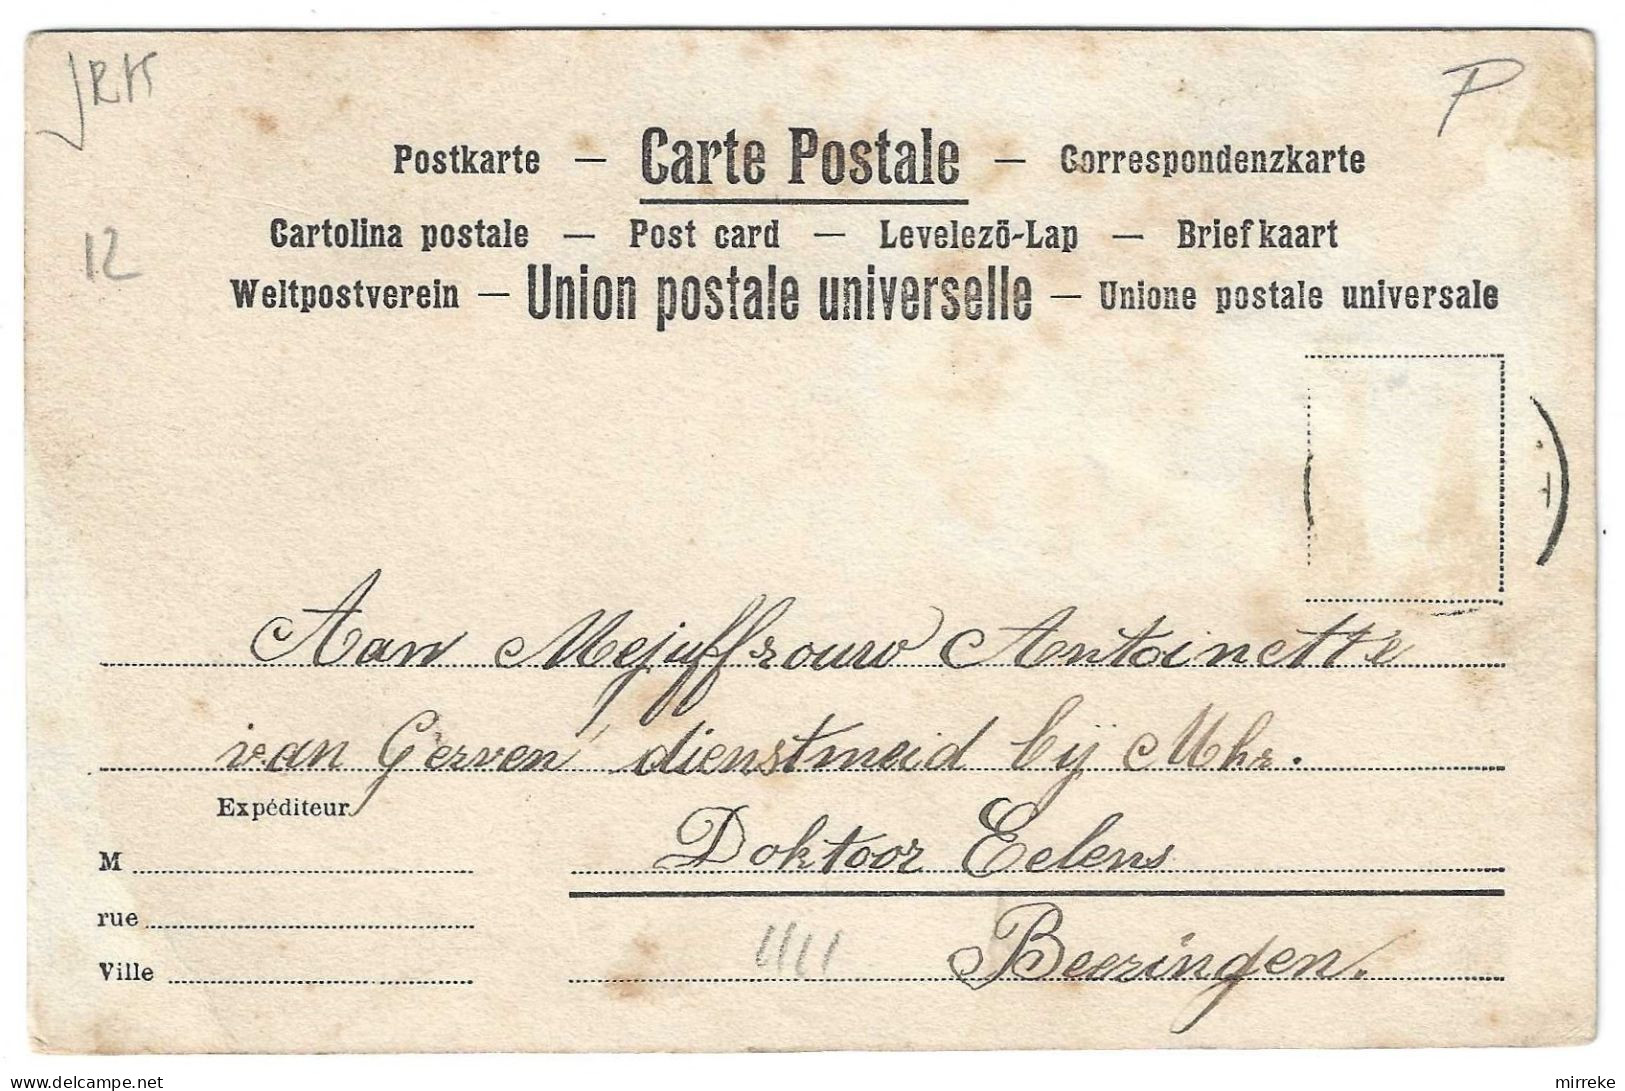 JRK
P
Postkarte — Carte Postale — Correspondenzkarte
Cartolina postale — Post card — Levelezö-Lap — Briefkaart
12
Weltpostverein — Union postale universelle — Unione postale universale
Aan Mejuffrouw Antoinette
van Gerven dienstmeid bij Mhr.
Expéditeur
Doktoor Eelens
M
rue
Beeringen.
Ville
delcampe.net
mirreke